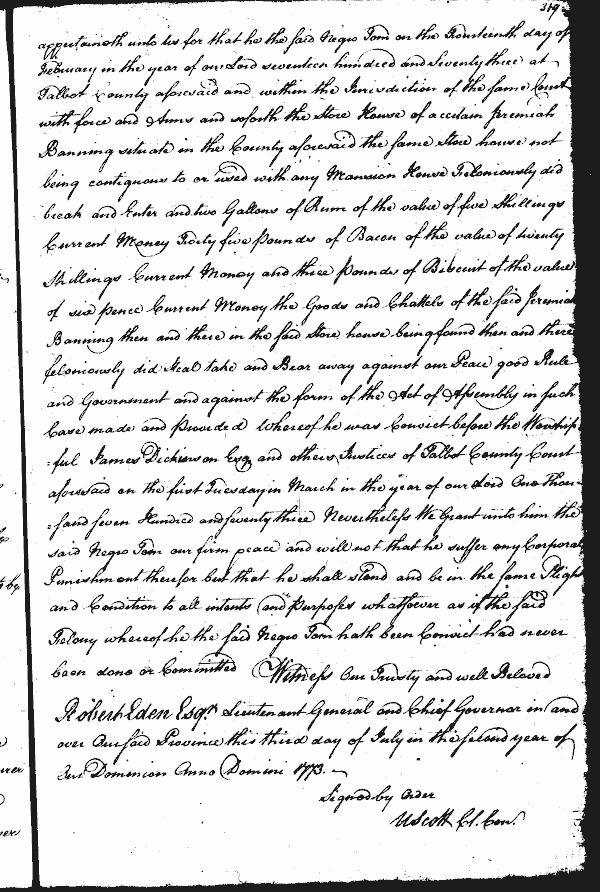 319
appertaineth unto us for that he the said Negro Tom on the Fourteenth day of
February in the year of our Lord seventeen hundred and Seventy three at
Talbot County aforesaid and within the Jurisdiction of the same Court
with force and Arms and soforth the Store House of a certain Jeremiah
Banning situate in the County aforesaid the same Store house not
being contiguous to or used with any Mansion House Feloniously did
break and Enter and two Gallons of Rum of the value of five Shillings
Current Money Forty five pounds of Bacon of the value of twenty
Shillings Current Money and three pounds of Biscuit of the value
of six pence Current Money the Goods and Chattels of the said Jeremiah
Banning then and there in the said Store house being found then and there
feloniously did Steal take and Bear away against our Peace good Rule
and Government and against the form of the Act of Assembly in such
Case made and provided whereof he was Convict before the Worship
=ful James Dickinson Esqr. and others Justices of Talbot County Court
aforesaid on the first Tuesday in March in the year of our Lord One Thou=
=sand seven Hundred and seventy three Nevertheless We Grant unto him the
said Negro Tom our firm peace and will not that he suffer any Corporal
Punishment therefor but that he shall stand and be in the same Plight
and Condition to all intents and purposes whatsoever as if the said
Felony whereof he the said Negro Tom hath been Convict had never
been done or Committed Witness Our Trusty and well Beloved
Robert Eden Esqr. Lieutenant General and Chief Governor in and
over Our said Province this third day of July in the second year of
Our Dominion Anno Domini 1773.
Signed by Order
U Scott Cl. Con.